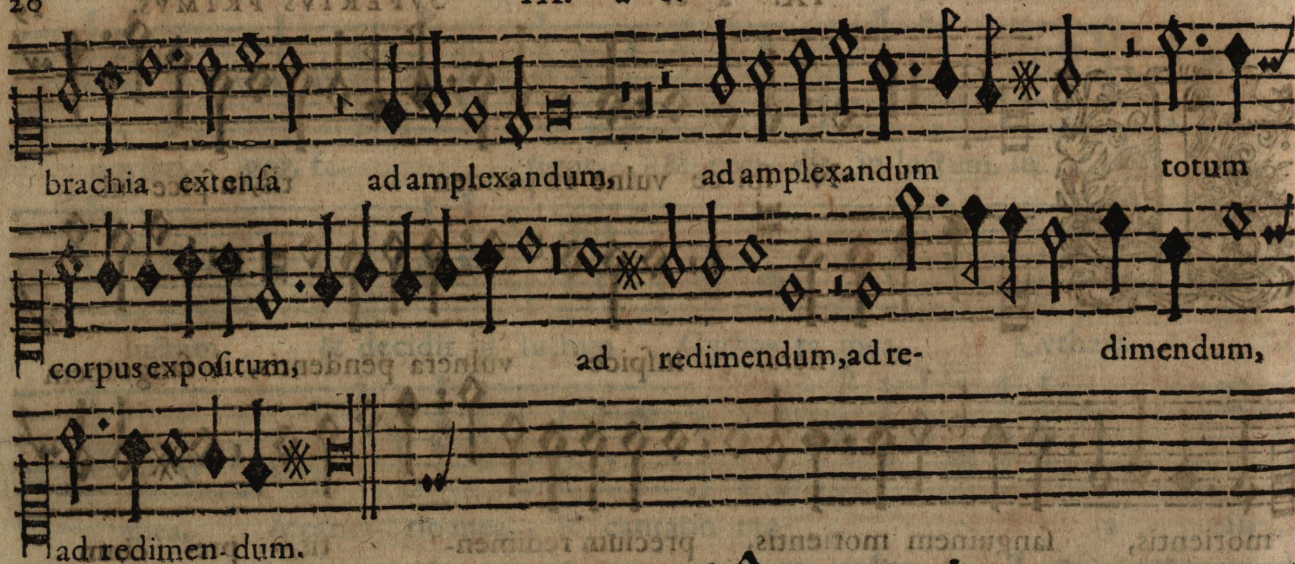 20
brachia extenſa ad amplexandum, ad amplexandum totum
corpus expoſitum, ad redimendum, ad re- dimendum,
ad redimen-dum.